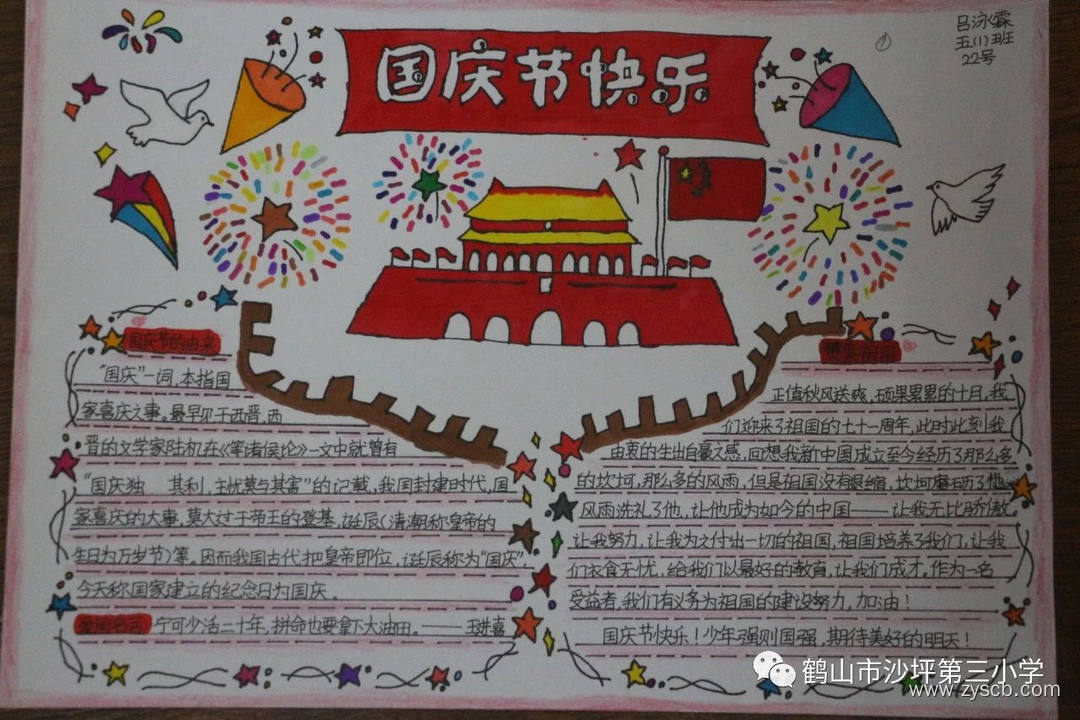 国庆节快乐
吕泳霖
五(1)班
22号
国庆节的由来
“国庆”一词,本指国
家喜庆之事。最早见于西晋,西
晋的文学家陆机在《五等诸侯论》一文中就曾有
“国庆独 其利,主忧莫与其害”的记载,我国封建时代,国
家喜庆的大事,莫大过于帝王的登基,诞辰(清潮称皇帝的
生日为万岁节)等。因而我国古代把皇帝即位,诞辰称为“国庆”。
今天称国家建立的纪念日为国庆。
爱国名言 宁可少活二十年,拼命也要拿下大油田。——王进喜
赞美祖国
正值秋风送爽,硕果累累的十月,我
们迎来了祖国的七十一周年,此时此刻我
由衷的生出自豪之感,回想我新中国成立至今经历了那么多
的坎坷,那么多的风雨,但是祖国没有退缩,坎坷磨砺了他,
风雨洗礼了他,让他成为如今的中国——让我无比骄傲,
让我努力,让我为之付出一切的祖国,祖国培养了我们,让我
们衣食无忧,给我们以最好的教育,让我们成才。作为一名
受益者,我们有义务为祖国的建设努力,加油!
国庆节快乐!少年强则国强,期待美好的明天!
鹤山市沙坪第三小学
www.zyscb.com